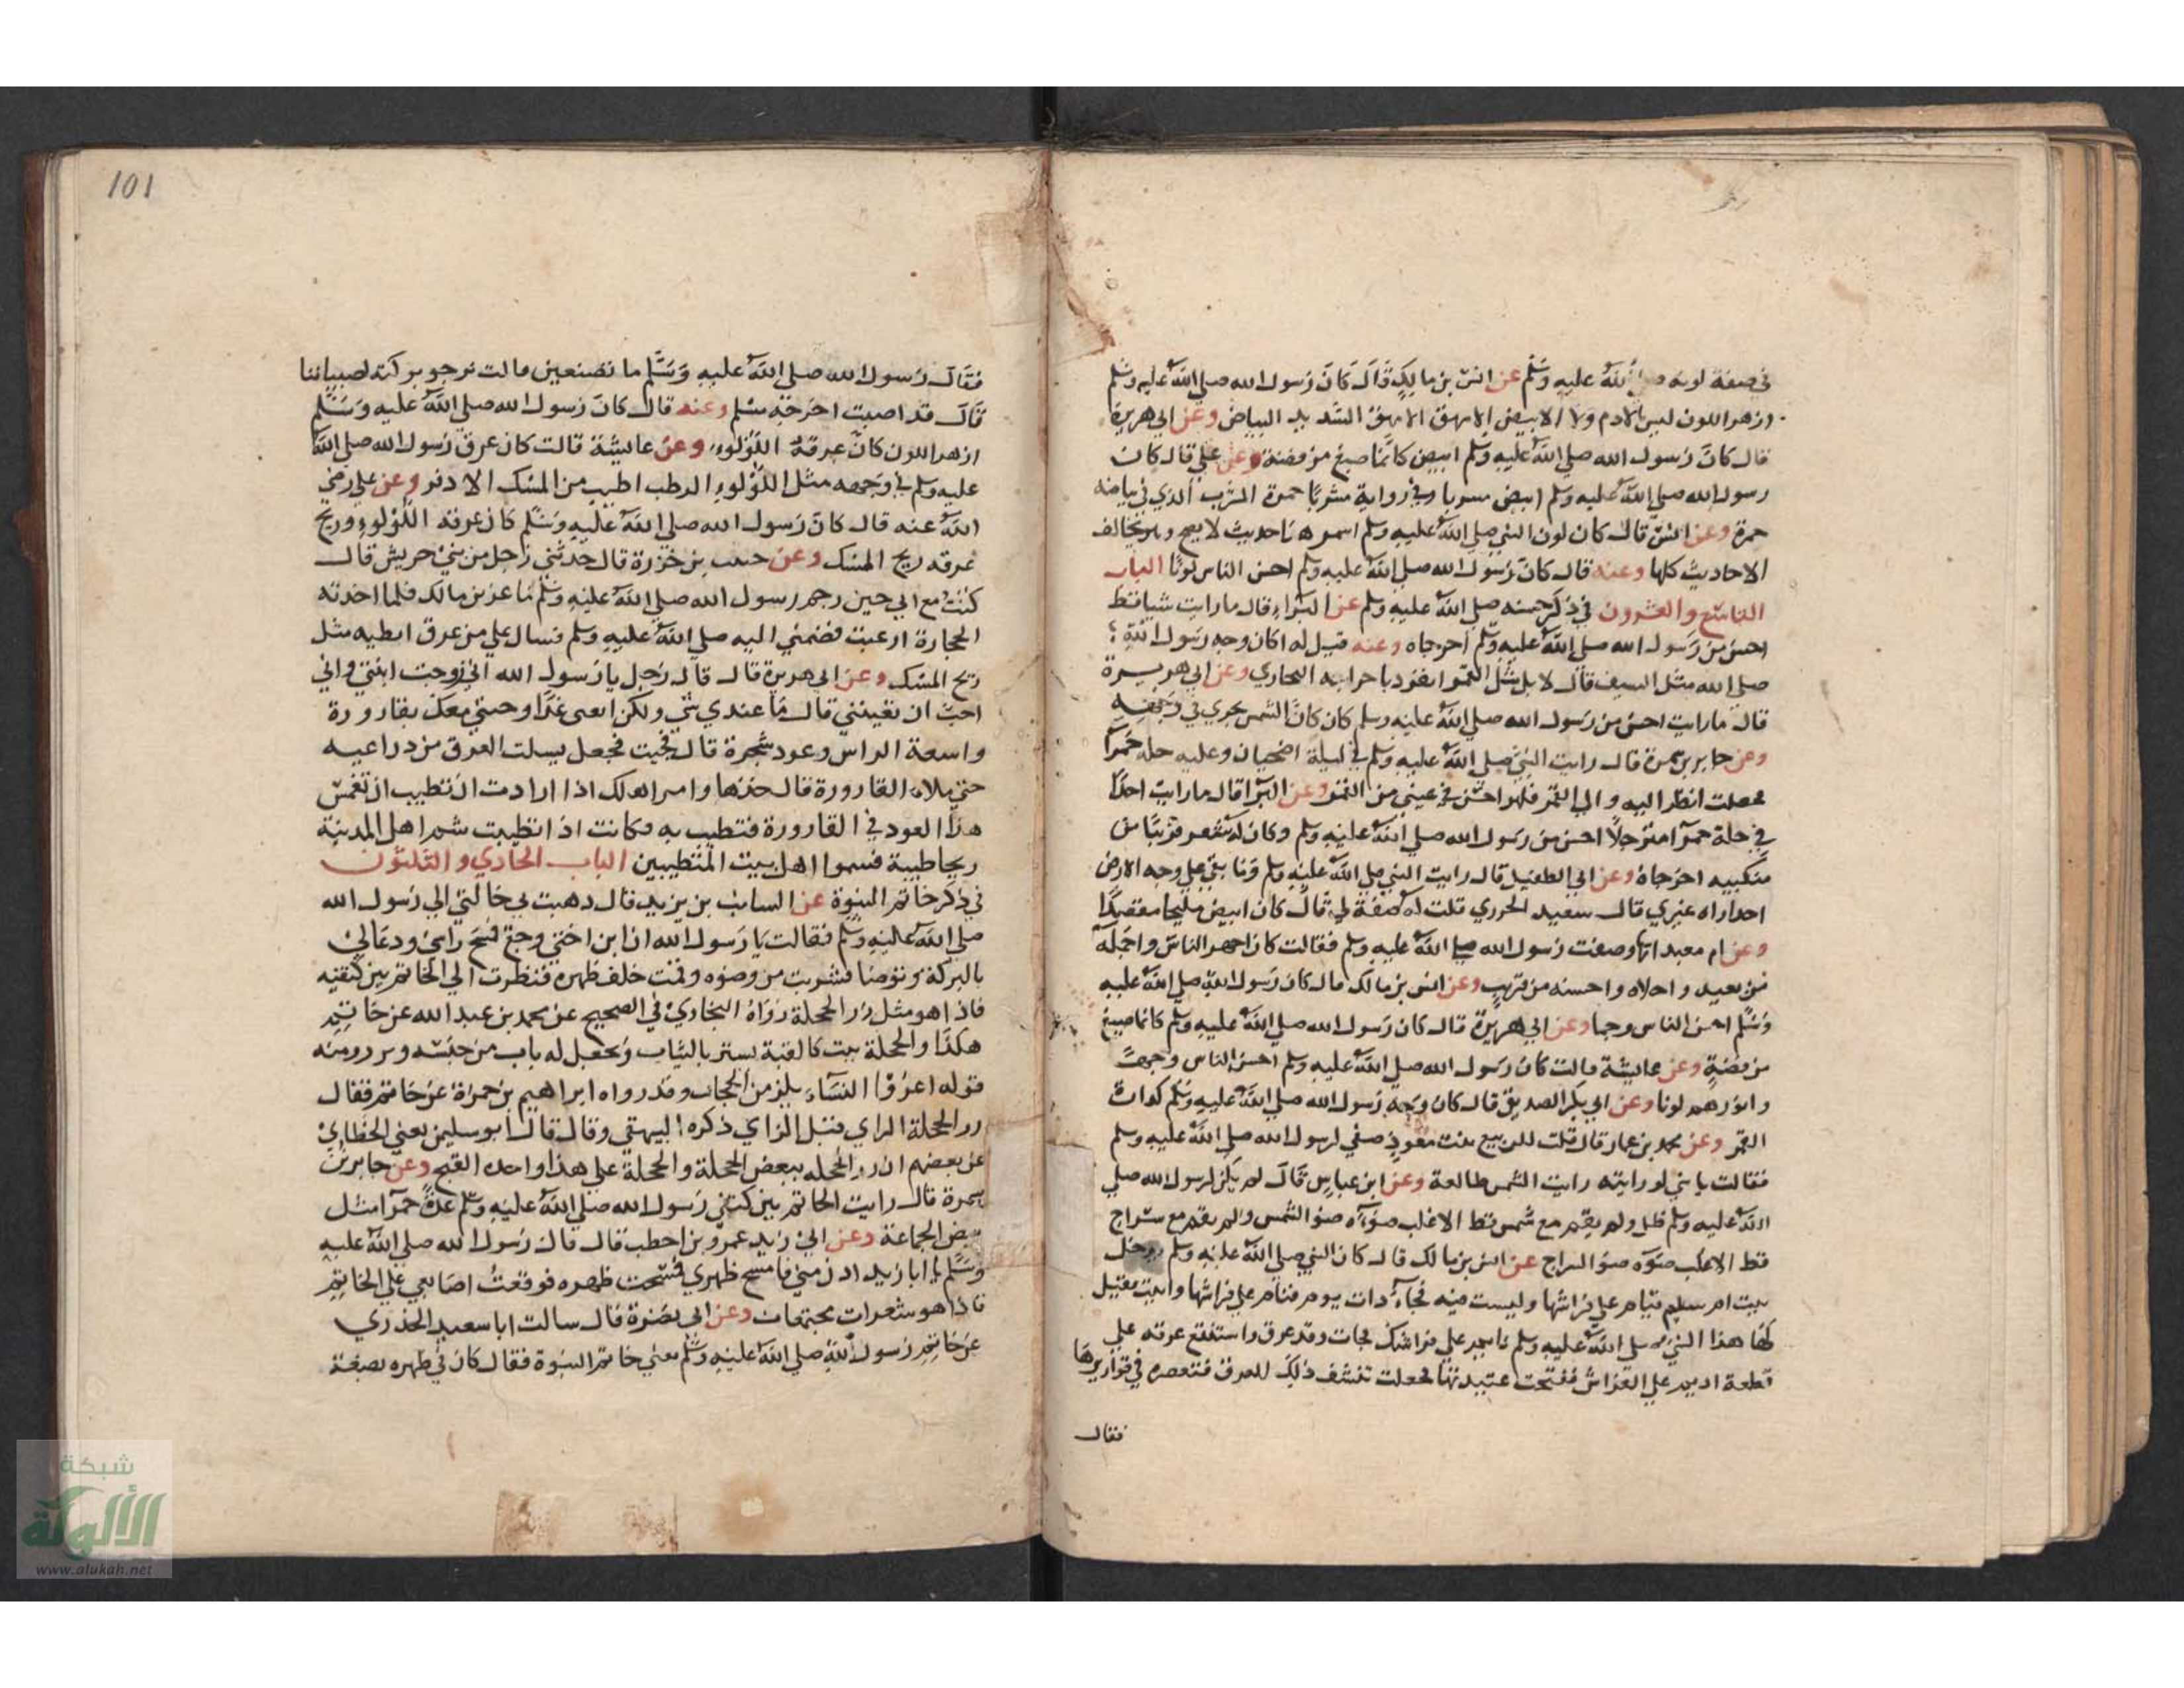 في صفة لونه صلي الله عليه وسلم عن انس بن مالك قال كان رسول الله صلي الله عليه وسلم
ازهر اللون ليس بالادم ولا الابيض الامهق الامهق الشديد البياض وعن ابي هريرة
قال كان رسول الله صلي الله عليه وسلم ابيض كانما صيغ من فضة وعن علي قال كان
رسول الله صلي الله عليه وسلم ابيض مسربا وفي رواية مشربا حمرة المشرب الذي في بياضه
حمرة وعن انس قال كان لون النبي صلي الله عليه وسلم اسمر هذا حديث لا يصح وهو يخالف
الاحاديث كلها وعنه قال كان رسول الله صلي الله عليه وسلم احسن الناس لونا الباب
التاسع والعشرون في ذكر حسنه صلي الله عليه وسلم عن البراء قال ما رايت شيا قط
احسن من رسول الله صلي الله عليه وسلم اخرجاه وعنه قيل له اكان وجه رسول الله
صلي الله مثل السيف قال لا بل مثل القمر انفرد باخراجه البخاري وعن ابي هريرة
قال ما رايت احسن من رسول الله صلي الله عليه وسلم كان كان الشمس يجري في وجهه
وعن جابر بن سمرة قال رايت النبي صلي الله عليه وسلم في ليلة اضحيان وعليه حله حمرآ
فجعلت انظر اليه والي القمر فلهو احسن في عيني من القمر وعن البرآ قال ما رايت احدا
في حلة حمرآ مترجلا احسن من رسول الله صلي الله عليه وسلم وكان له شعر قريبا من
منكبيه اخرجاه وعن ابي الطفيل قال رايت النبي صلي الله عليه وسلم وما بقي علي وجه الارض
احد راه غيري قال سعيد الحرري قلت له صفة لي قال كان ابيض مليحا مقصدا
وعن ام معبد انها وصفت رسول الله صلي الله عليه وسلم فقالت كان اجهر الناس واجمله
من بعيد واحلاه واحسنه من قريب وعن انس بن مالك قال كان رسول الله صلي الله عليه
وسلم احسن الناس وجها وعن ابي هريرة قال كان رسول الله صلي الله عليه وسلم كانما صيغ
من فضة وعن عايشة قالت كان رسول الله صلي الله عليه وسلم احسن الناس وجها
وانورهم لونا وعن ابي بكر الصديق قال كان وجه رسول الله صلي الله عليه وسلم كدارة
القمر وعن محمد بن عمار قال قلت للربيع بنت معوذ صفي لي رسول الله صلي الله عليه وسلم
فقالت يا بني لو رايته رايت الشمس طالعة وعن ابن عباس قال لم يكن لرسول الله صلي
الله عليه وسلم ظل ولم يقم مع شمس قط الا غلب ضوءه ضوا الشمس ولم يقم مع سراج
قط الا غلب ضوءه ضوا السراج عن انس بن مالك قال كان النبي صلي الله عليه وسلم يدخل
بيت ام سليم فينام علي فراشها وليست فيه فجاء ذات يوم فنام علي فراشها واتيت فقيل
لها هذا النبي صلي الله عليه وسلم نايم علي فراشك فجات وقد عرق واستنقع عرقه علي
قطعة اديم علي الفراش ففتحت عتيدتها فجعلت تنشف ذلك العرق فتعصره في قواريرها
فقال
101
فقال رسول الله صلي الله عليه وسلم ما تصنعين قالت نرجو بركته لصبياننا
قال قد اصبت اخرجه مسلم وعنه قال كان رسول الله صلي الله عليه وسلم
ازهر اللون كان عرقه اللؤلوء وعن عايشة قالت كان عرق رسول الله صلي الله
عليه وسلم في وجهه مثل اللؤلوء الرطب اطيب من المسك الادفر وعن علي رضي
الله عنه قال كان رسول الله صلي الله عليه وسلم كان عرقه اللؤلوء وريح
عرقه ريح المسك وعن حبيب بن خزرة قال حدثني رجل من بني حريش قال
كنت مع ابي حين رجم رسول الله صلي الله عليه وسلم ماعز بن مالك فلما اخذته
الحجارة ارعبت فضمني اليه صلي الله عليه وسلم فسال علي من عرق ابطيه مثل
ريح المسك وعن ابي هريرة قال قال رجل يا رسول الله اني زوجت ابنتي واني
احب ان تعينني قال ما عندي شي ولكن القني غدا وجيني معك بقارورة
واسعة الراس وعود شجرة قال فجيت فجعل يسلت العرق من ذراعيه
حتي ملاء القارورة قال خذها وامر اهلك اذا ارادت ان تطيب ان تغمس
هذا العود في القارورة فتطيب به فكانت اذا تطيبت شم اهل المدينة
ريحا طيبة فسموا اهل بيت المتطيبين الباب الحادي والثلثون
في ذكر خاتم النبوة عن السايب بن يزيد قال ذهبت بي خالتي الي رسول الله
صلي الله عليه وسلم فقالت يا رسول الله ان ابن اختي وجع فمسح راسي ودعا لي
بالبركة وتوضا فشربت من وضوه وقمت خلف ظهره فنظرت الي الخاتم بين كتفيه
فاذا هو مثل زر الحجلة رواه البخاري في الصحيح عن محمد بن عبد الله عن حاتم
هكذا والحجلة بيت كالقبة يستر بالثياب ويجعل له باب من جنسه وزر ومنه
قوله اعزوا النساء يلزمن الحجاب وقد رواه ابراهيم بن حمزة عن حاتم فقال
رز الحجلة الراي قبل الزاي ذكره البيهقي وقال قال ابو سليمن يعني الخطابي
عن بعضهم ان رز الحجله بيض الحجلة والحجلة علي هذا واحد القبج وعن جابر بن
سمرة قال رايت الخاتم بين كتفي رسول الله صلي الله عليه وسلم غدة حمرآ مثل
بيض الحمامة وعن ابي زيد عمرو بن اخطب قال قال رسول الله صلي الله عليه
وسلم يا ابا زيد ادن مني فامسح ظهري فمسحت ظهره فوقعت اصابعي علي الخاتم
فاذا هو شعرات مجتمعات وعن ابي نضرة قال سالت ابا سعيد الخدري
عن خاتم رسول الله صلي الله عليه وسلم يعني خاتم النبوة فقال كان في ظهره بضعة
شبكة
الألوكة
www.alukah.net